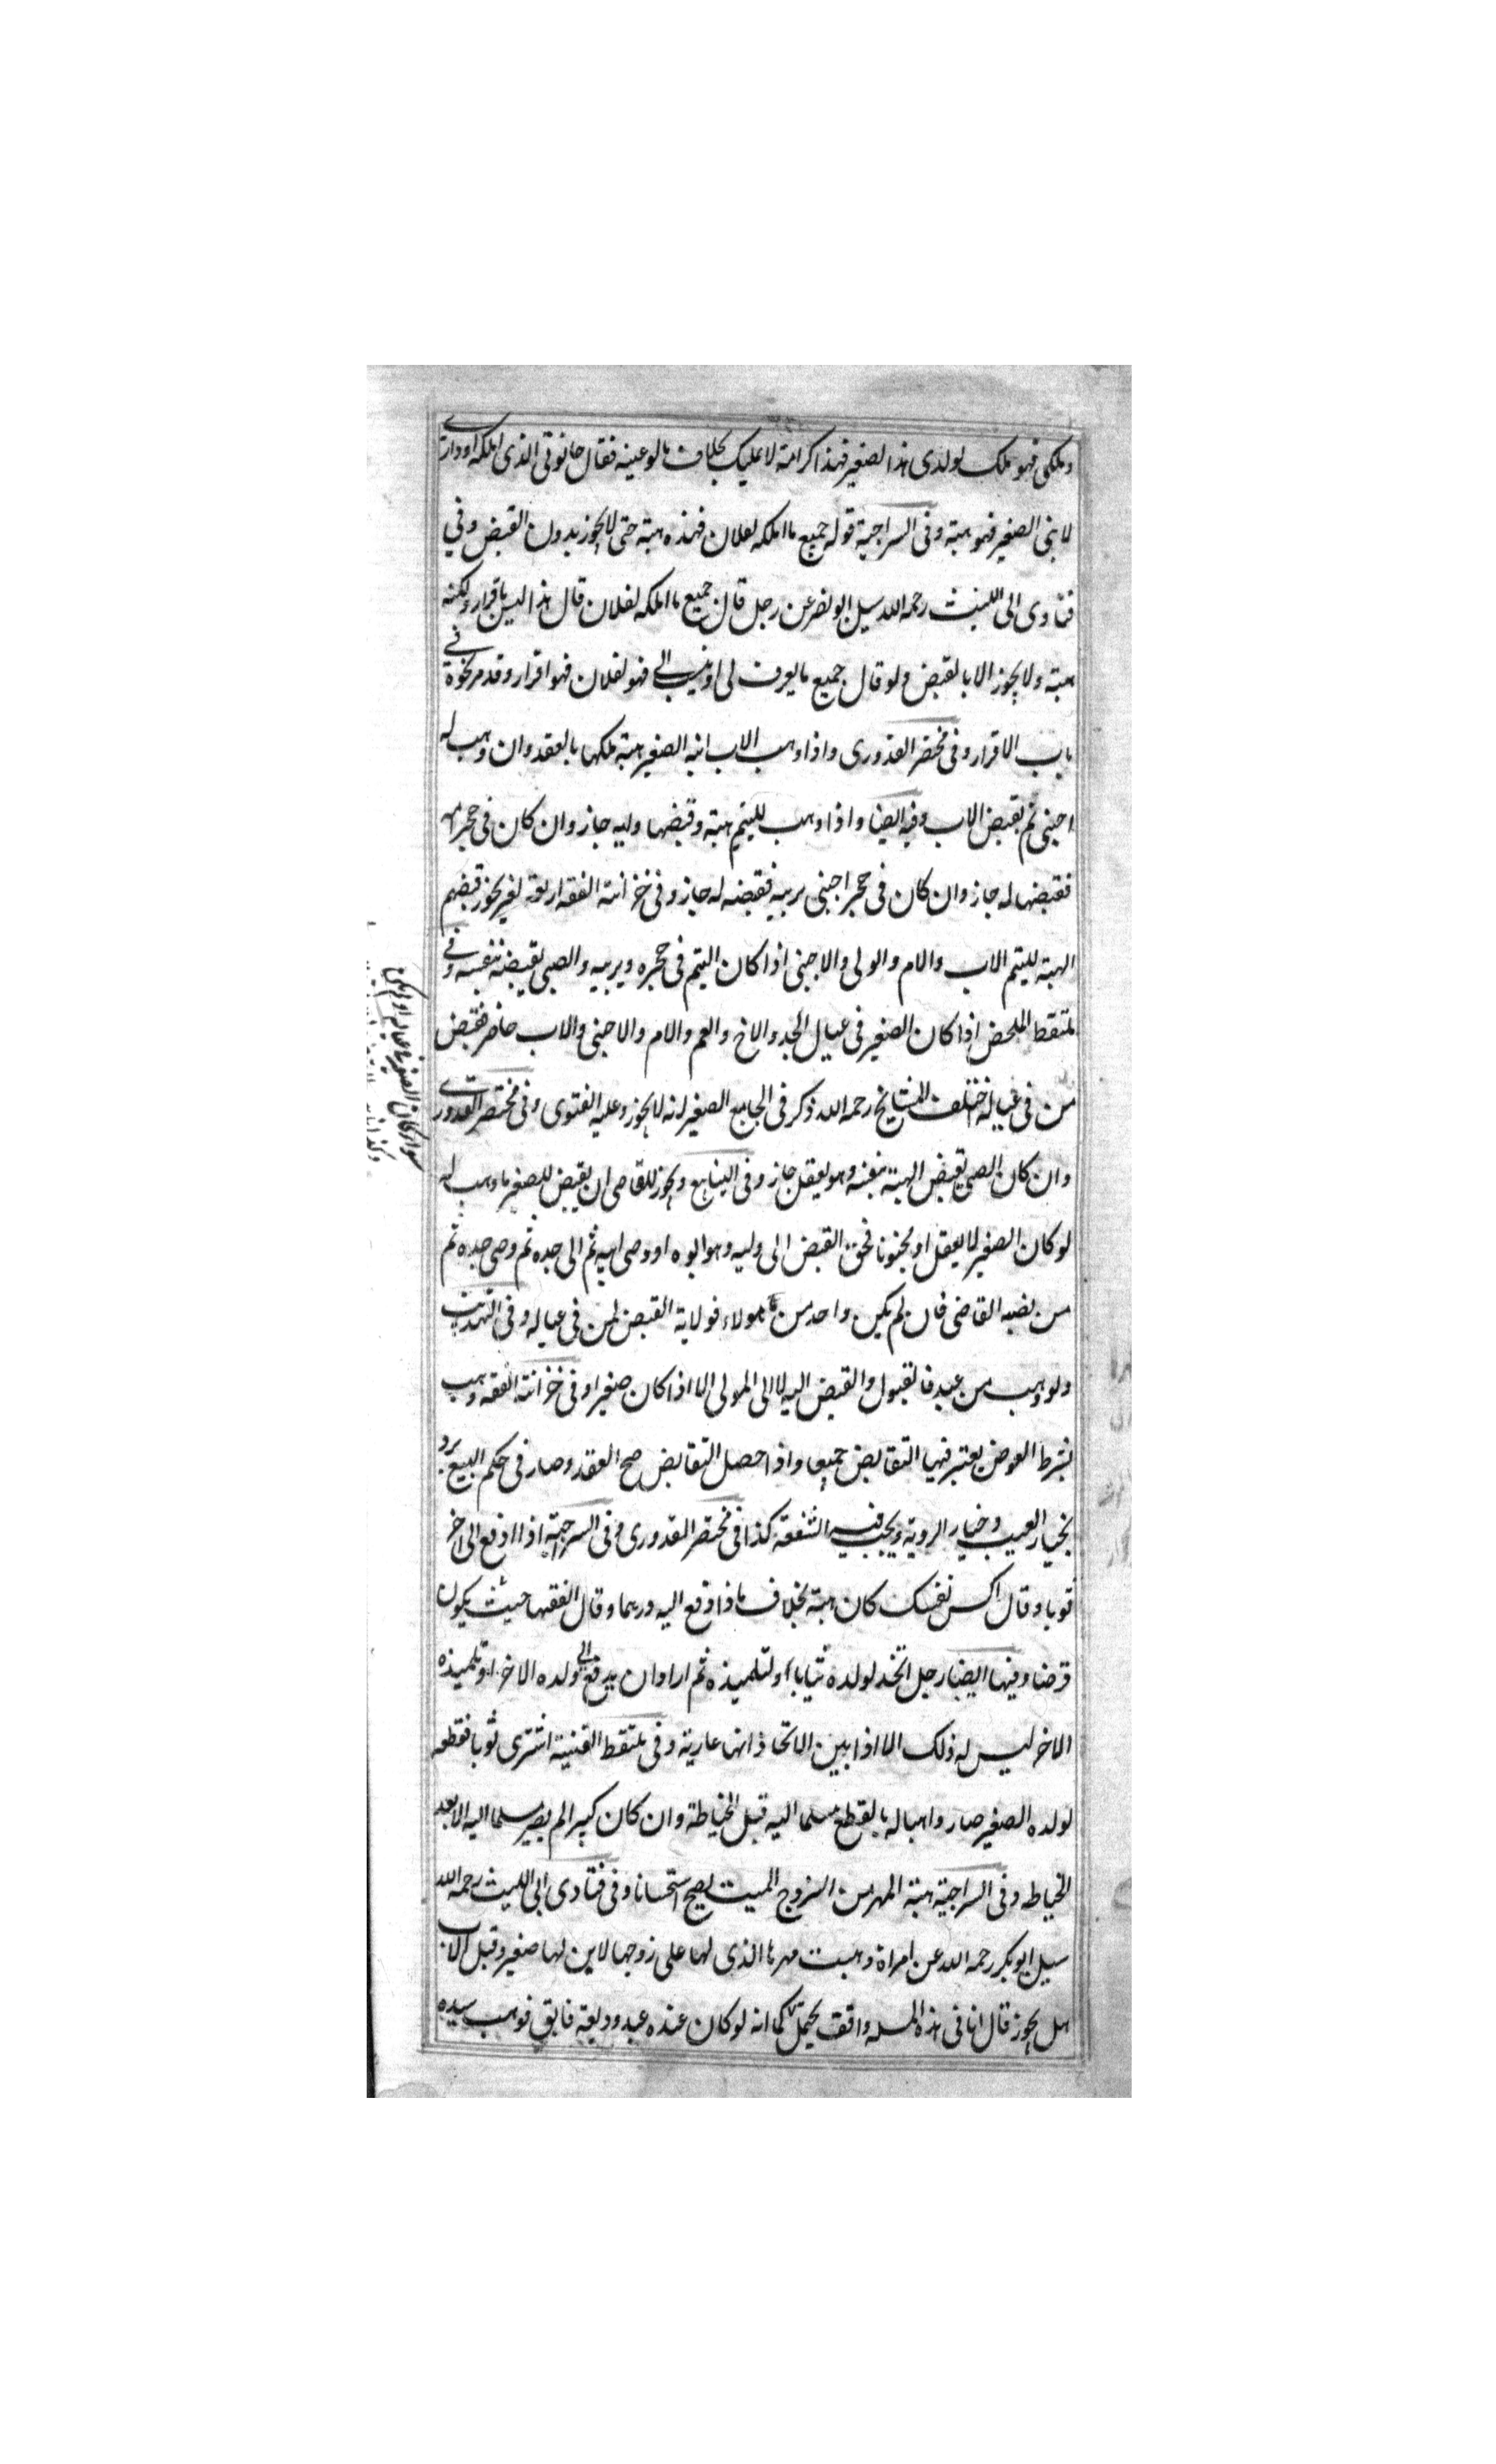 وملكى فهو ملك لولدى هذا الصغير فهذا كرامة لا تمليك بخلاف ما لو عينه فقال حانوتى الذى املكه او دارى
لابنى الصغير فهو هبة وفى السراجية قوله جميع ما املكه لفلان فهذه هبة حتى لا يجوز بدون القبض وفي
فتاوى ابى الليث رحمه الله سيل ابو نصر عن رجل قال جميع ما املكه لفلان قال هذا ليس باقرار ولكنه
هبة ولا يجوز الا بالقبض ولو قال جميع ما يعرف لى او ينسب الى فهو لفلان فهو اقرار وقد مر نحوه فى
باب الاقرار وفى مختصر القدورى واذا وهب الاب ابنه الصغير هبة ملكها بالعقد وان وهب له
اجنبى تم بقبض الاب وفيه ايضا واذا وهب لليتيم هبة وقبضها وليه جاز وان كان فى حجر امه
فقبضها له جاز وان كان فى حجر اجنبى يربيه فقبضه له جاز وفى خزانة الفقه اربعة نفر يجوز قبضهم
الهبة لليتيم الاب والام والولى والاجنبى اذا كان اليتيم فى حجره ويربيه والصبى بقبضه بنفسه وفى
ملتقط الملخص اذا كان الصغير فى عيال الجد والاخ والعم والام والاجنبى والاب حاضر فقبض
من فى عياله اختلف المشايخ رحمه الله ذكر فى الجامع الصغير انه لا يجوز وعليه الفتوى وفى مختصر القدورى
وان كان الصبى بقبض الهبة بنفسه وهو يعقل جاز وفى الينابيع ويجوز للقاضى ان يقبض للصغير ما وهب له
لو كان الصغير لا يعقل او مجنونا فحق القبض الى وليه وهو ابوه او وصى ابيه ثم الى جده ثم وصى جده ثم
من نصبه القاضى فان لم يكن واحد من هولاء فولاية القبض لمن فى عياله وفى التهذيب
ولو وهب من عبد فالقبول والقبض اليه لا الى المولى الا اذا كان صغيرا وفى خزانة الفقه وهب
بشرط العوض يعتبر فيها التقابض جميعا واذا حصل التقابض صح العقد وصار فى حكم البيع يرد
بخيار العيب وخيار الروية ويجب فيه الشفعة كذا فى مختصر القدورى وفى السراجية اذا دفع الى اخر
ثوبا وقال اكس نفسك كان هبة بخلاف ما اذا دفع اليه درهما وقال انفقها حيث يكون
قرضا وفيها ايضا رجل اتخذ لولده ثيابا او لتلميذه ثم اراد ان يدفع الى ولده الاخر او تلميذه
الاخر ليس له ذلك الا اذا بين الاتخاذ انها عارية وفى ملتقط القنية اشترى ثوبا فقطعه
لولده الصغير صار واهبا له بالقطع مسلما اليه قبل الخياطة وان كان كبيرا لم يصر مسلما اليه الا بعد
الخياطه وفى السراجية هبة المهر من الزوج الميت يصح استحسانا وفى فتاوى ابى الليث رحمه الله
سيل ابو بكر رحمه الله عن امراة وهبت مهرها الذى لها على زوجها لابن لها صغير وقبل الاب
هل يجوز قال انا فى هذه المسله واقف يحتمل كما انه لو كان عنده عبد وديعة فابق فوهب سيده